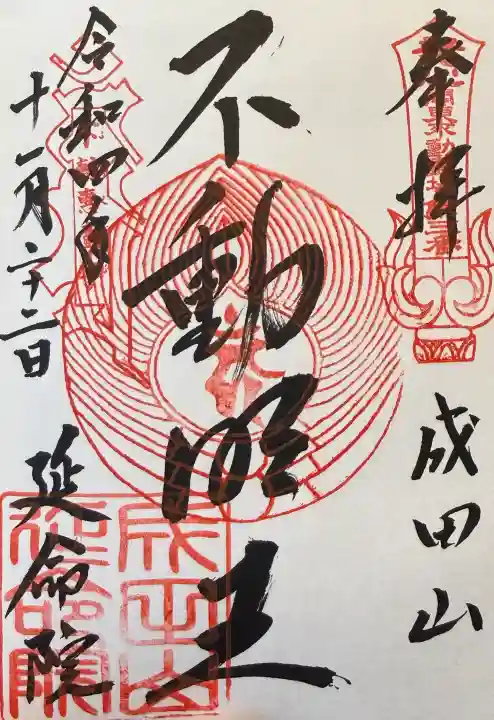 奉拝
成田山
不動明王
令和四年
十一月二十二日
延命院
成田山
延命院